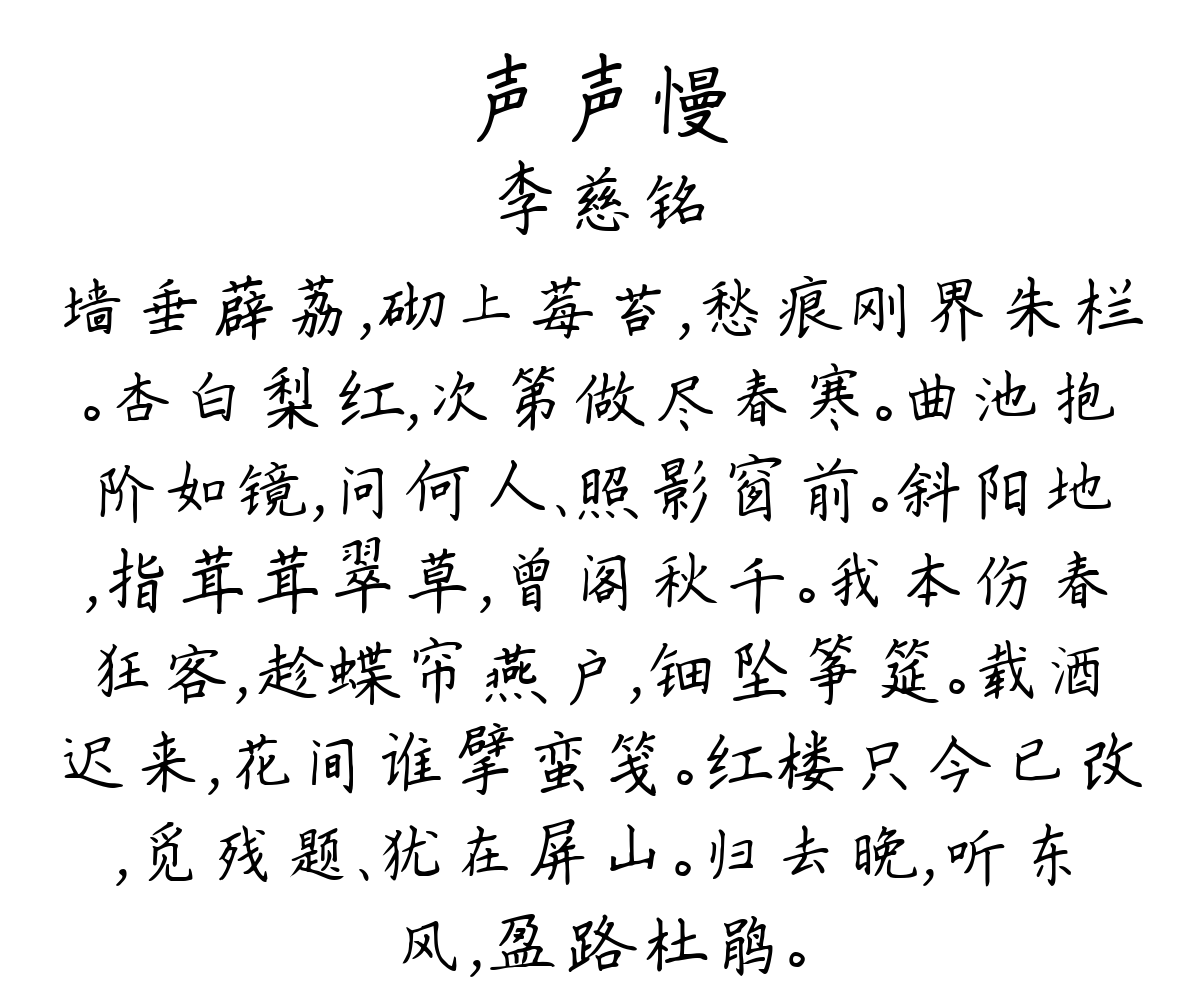 声声慢
李慈铭
墙垂薜荔,砌上莓苔,愁痕刚界朱栏
。杏白梨红,次第做尽春寒。曲池抱
阶如镜,问何人、照影窗前。斜阳地
,指茸茸翠草,曾阁秋千。我本伤春
狂客,趁蝶帘燕户,钿坠筝筵。载酒
迟来,花间谁擘蛮笺。红楼只今已改
,觅残题、犹在屏山。归去晚,听东
风,盈路杜鹃。